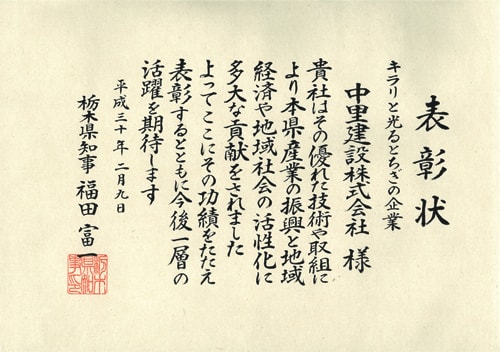 表彰状
キラリと光るとちぎの企業
中里建設株式会社 様
貴社はその優れた技術や取組に
より本県産業の振興と地域
経済や地域社会の活性化に
多大な貢献をされました
よってここにその功績をたたえ
表彰するとともに今後一層の
活躍を期待します
平成三十年 二月九日
栃木県知事 福田 富一